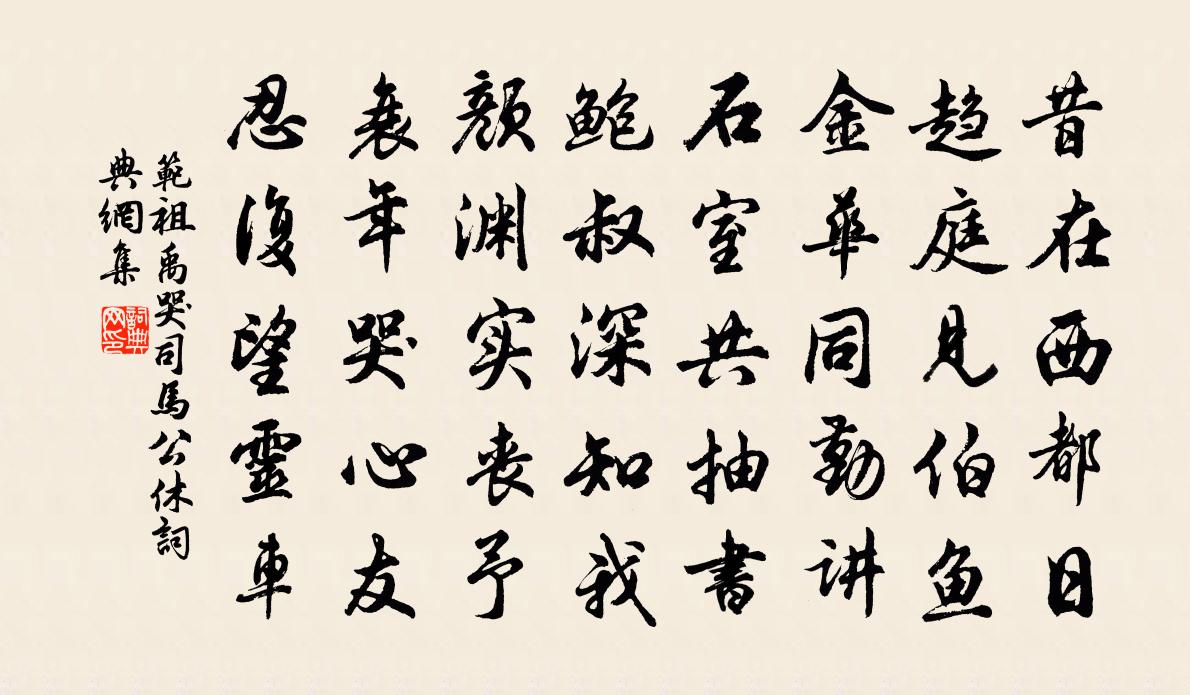 昔在西都日
趋庭见伯鱼
金華同勤讲
石室共抽書
鲍叔深知我
颜渊实丧予
衰年哭心友
忍復望靈車
範祖禹哭司馬公休詞
典網集
詞典
网印